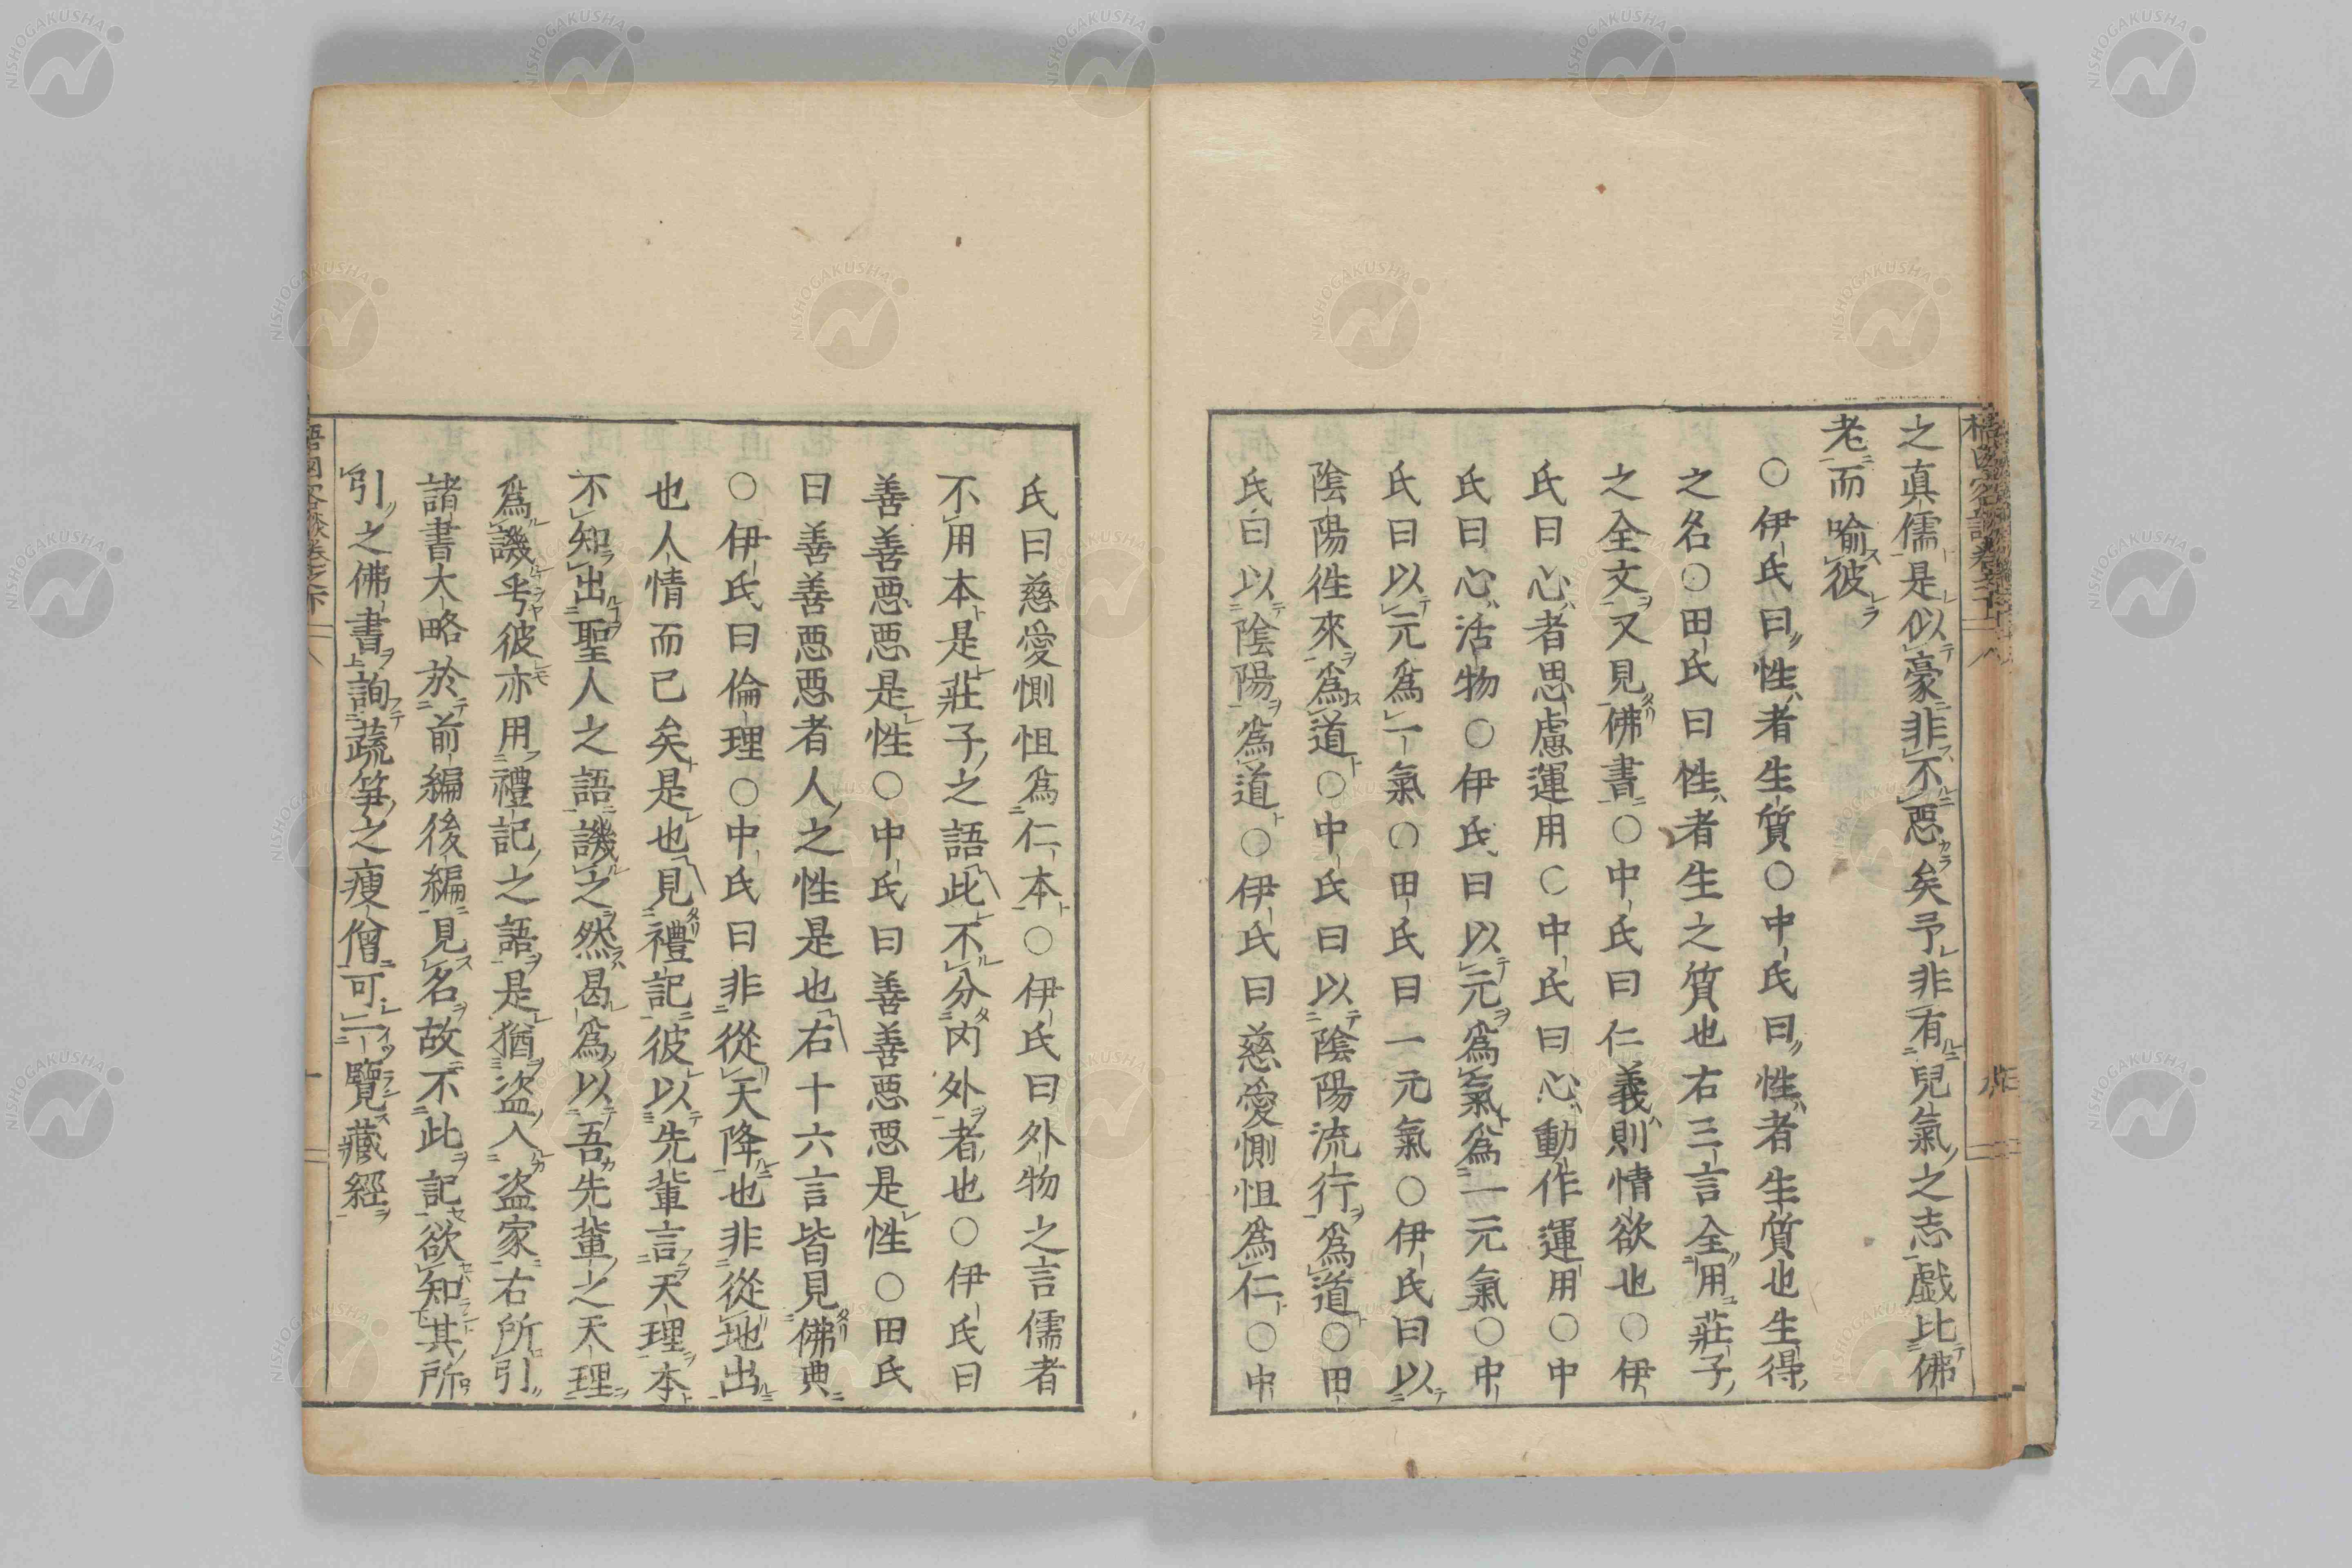 之眞儒是似豪非不惡矣予非有兒氣之志戯比佛
老而喻彼
○伊氏曰性者生質○中氏曰性者生質也生得
之名○田氏曰性者生之質也右三言全用莊子
之全文又見佛書○中氏曰仁義則情欲也○伊
氏曰心者思慮運用○中氏曰心動作運用○中
氏曰心活物○伊氏曰以元爲氣爲一元氣○中
氏曰以元爲一氣○田氏曰一元氣○伊氏曰以
陰陽徃來爲道○中氏曰以陰陽流行爲道○田
氏曰以陰陽爲道○伊氏曰慈愛惻怛爲仁○中
氏曰慈愛惻怛爲仁本○伊氏曰外物之言儒者
不用本是莊子之語此不分内外者也○伊氏曰
善善惡惡是性○中氏曰善善惡惡是性○田氏
曰善善惡惡者人之性是也右十六言皆見佛典
○伊氏曰倫理○中氏曰非從天降也非從地出
也人情而已矣是也見禮記彼以先輩言天理本
不知出聖人之語譏之然曷爲以吾先輩之天理
爲譏乎彼亦用禮記之語是猶盗入盗家右所引
諸書大略於前編後編見名故不此記欲知其所
引之佛書詢蔬笋之瘦僧可一覽藏經
NISHOGAKUSHA